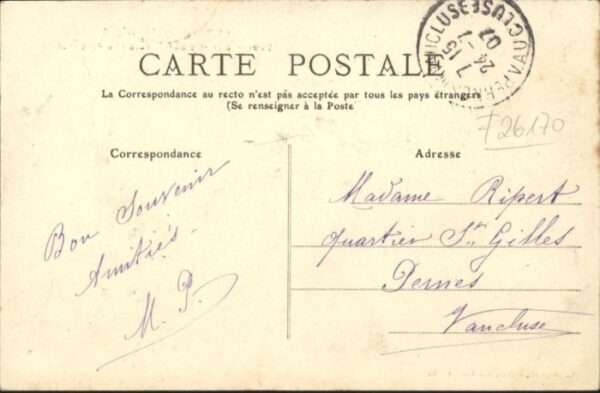 CARTE POSTALE
La Correspondance au recto n'est pas acceptée par tous les pays étrangers
(Se renseigner à la Poste
Correspondance
Adresse
F26170
Bon Souvenir
Amitiés
M. P.
Madame Ripert
quartier St Gilles
Pernes
Vaucluse
VAUCLUSE
7 15
24 - 7
07